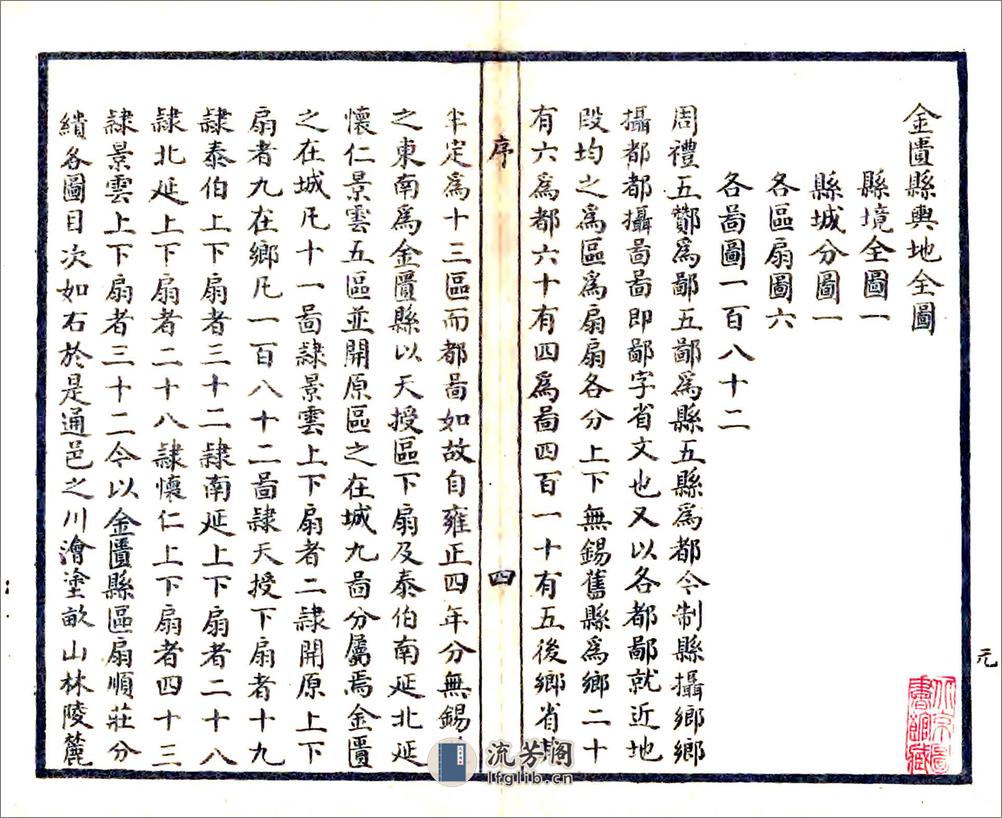 金匱縣輿地全圖
縣境全圖一
縣城分圖一
各區扇圖六
各啚圖一百八十二
周禮五酇爲鄙五鄙爲縣五縣爲都今制縣攝鄉鄉
攝都都攝啚啚即鄙字省文也又以各都鄙就近地
段均之爲區爲扇扇各分上下無錫舊縣爲鄉二十
有六爲都六十有四爲啚四百一十有五後鄉省
序
四
半定爲十三區而都啚如故自雍正四年分無錫
之東南爲金匱縣以天授區下扇及泰伯南延北延
懷仁景雲五區並開原區之在城九啚分屬焉金匱
之在城凡十一啚隷景雲上下扇者二隷開原上下
扇者九在鄉凡一百八十二啚隷天授下扇者十九
隷泰伯上下扇者三十二隷南延上下扇者二十八
隷北延上下扇者二十八隷懷仁上下扇者四十三
隷景雲上下扇者三十二今以金匱縣區扇順莊分
繢各圖目次如右於是通邑之川澮塗畝山林陵麓
元
流芳阁
lfglib.cn